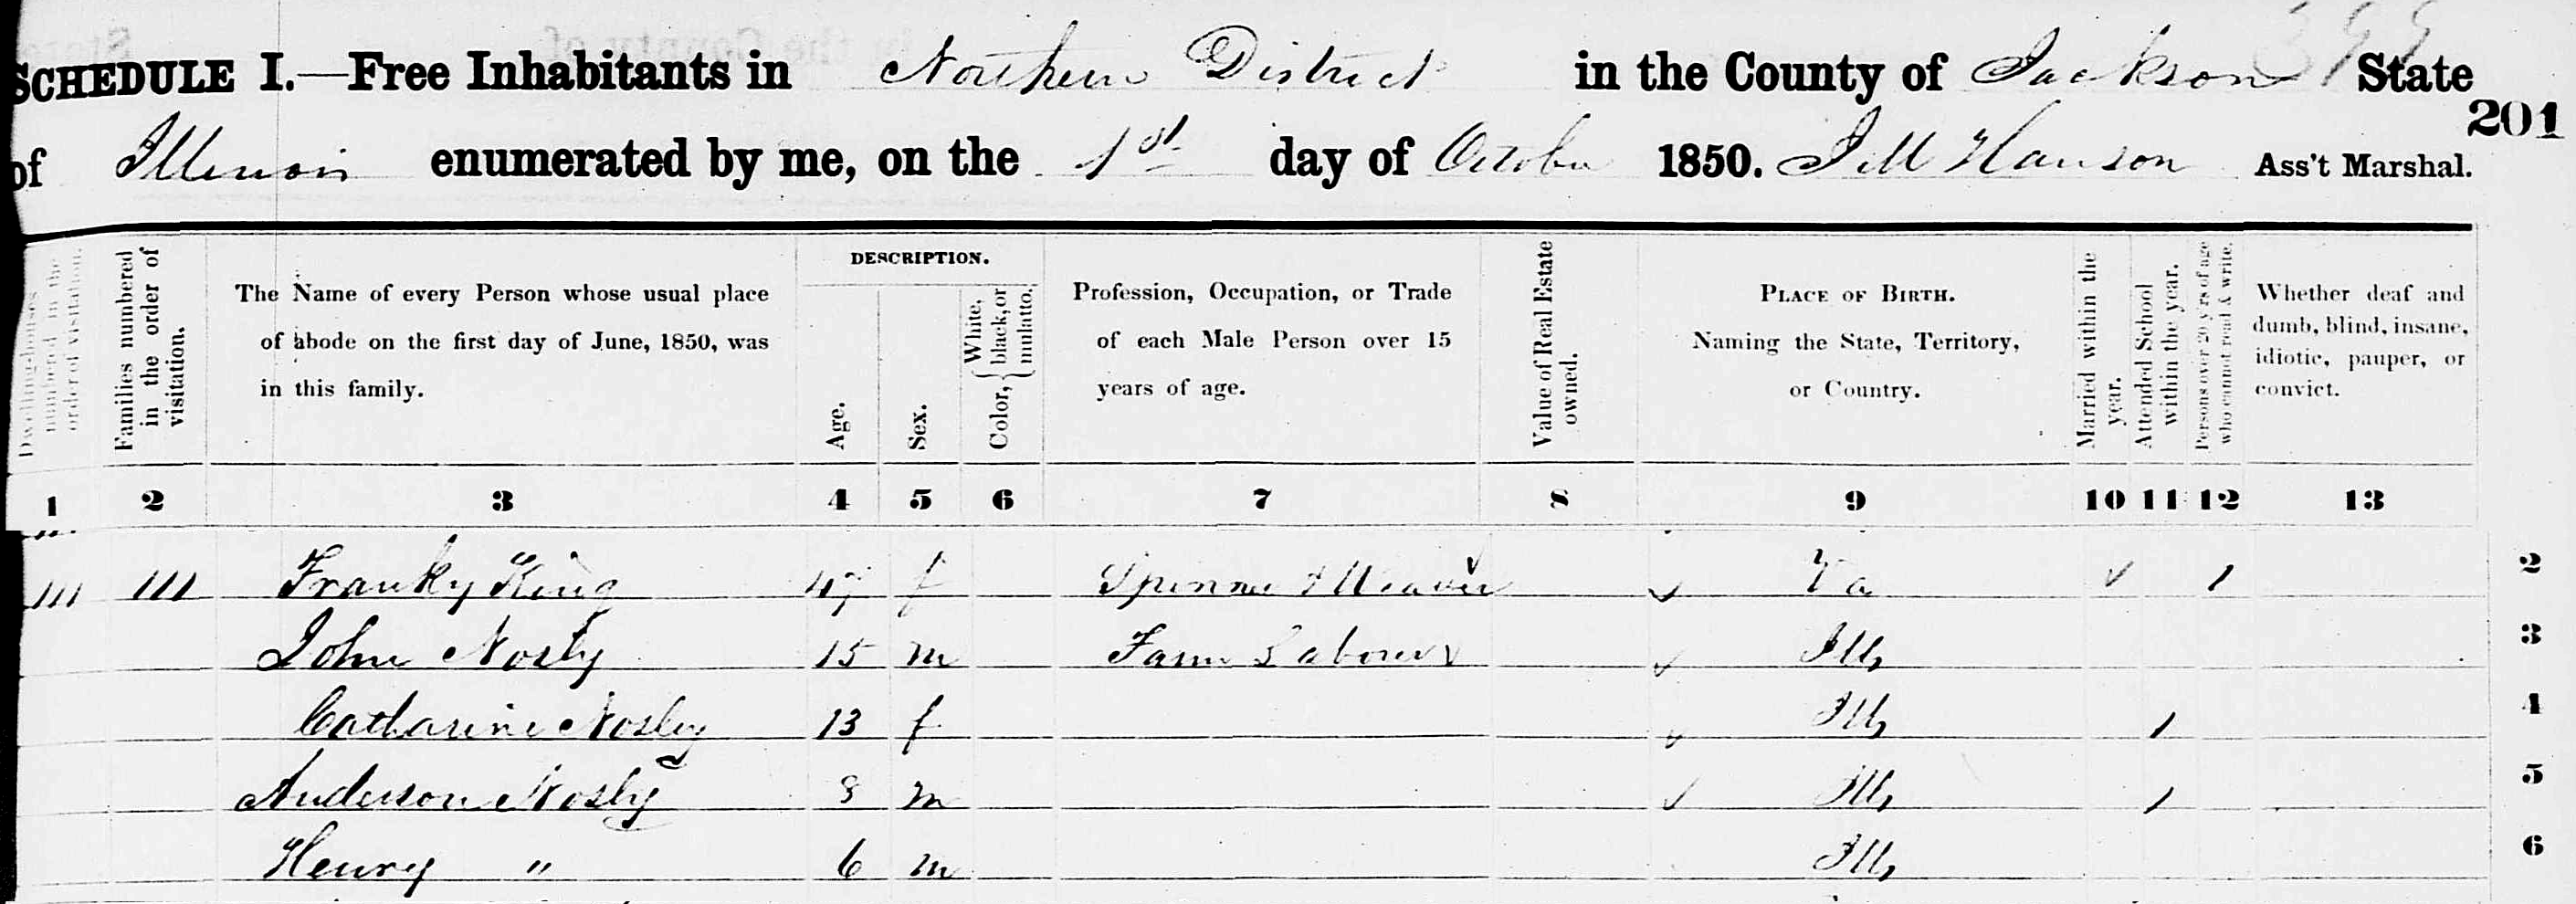 SCHEDULE I.—Free Inhabitants in Northern District in the County of Jackson State
201
of Illinois enumerated by me, on the 1st day of October 1850. Hanson Ass't Marshal.
Dwelling-houses numbered in the order of visitation.
Families numbered in the order of visitation.
The Name of every Person whose usual place
of abode on the first day of June, 1850, was
in this family.
DESCRIPTION.
Age.
Sex.
Color, { White, black, or mulatto.
Profession, Occupation, or Trade
of each Male Person over 15
years of age.
Value of Real Estate owned.
PLACE OF BIRTH.
Naming the State, Territory,
or Country.
Married within the year.
Attended School within the year.
Persons over 20 y'rs of age who cannot read & write.
Whether deaf and
dumb, blind, insane,
idiotic, pauper, or
convict.
1 2 3 4 5 6 7 8 9 10 11 12 13
111 111 Franky King 47 f Spinner & Weaver Va 1 2
John Nosby 15 m Farm Labourer Ills 3
Catharine Nosby 13 f Ills 1 4
Anderson Nosby 8 m Ills 1 5
Henry " 6 m Ills 6